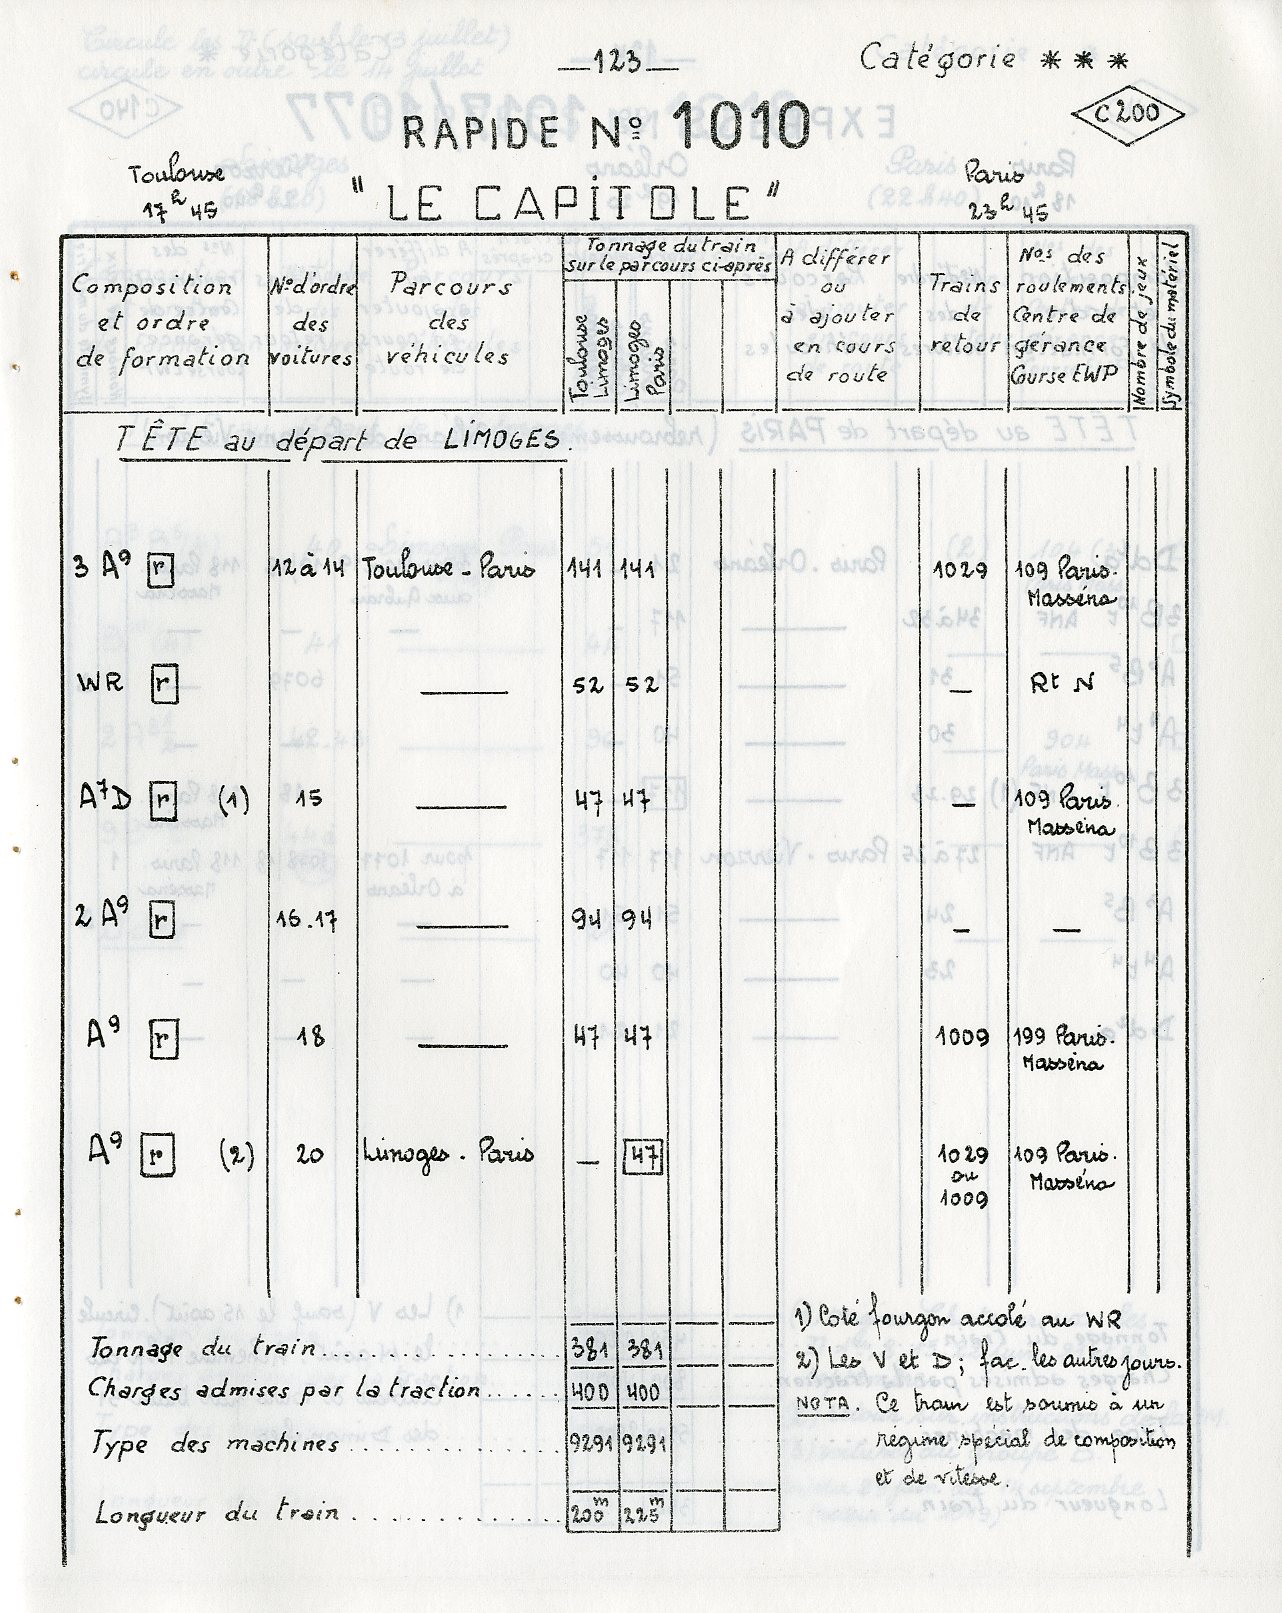 —123—
Catégorie ✳ ✳ ✳
C200
RAPIDE Nº 1010
Toulouse
17h 45
"LE CAPITOLE"
Paris
23h 45
Composition
et ordre
de formation
Nº d'ordre
des
voitures
Parcours
des
véhicules
Tonnage du train
sur le parcours ci-après
Toulouse
Limoges
Limoges
Paris
A différer
ou
à ajouter
en cours
de route
Trains
de
retour
Nos des
roulements
Centre de
gérance
Course EWP
Nombre de jeux
Symbole du matériel
TÊTE au départ de LIMOGES.
3 A9 r 12 à 14 Toulouse - Paris 141 141 1029 109 Paris.
Masséna
WR r —— 52 52 — Rt N
A7D r (1) 15 —— 47 47 — 109 Paris.
Masséna
2 A9 r 16.17 —— 94 94 — —
A9 r 18 —— 47 47 1009 199 Paris.
Masséna
A9 r (2) 20 Limoges - Paris — 47 1029 109 Paris.
ou Masséna
1009
Tonnage du train................ 381 381
Charges admises par la traction...... 400 400
Type des machines............... 9291 9291
Longueur du train.............. 200m 225m
1) Coté fourgon accolé au WR
2) Les V et D; fac. les autres jours.
NOTA. Ce train est soumis à un
régime spécial de composition
et de vitesse.